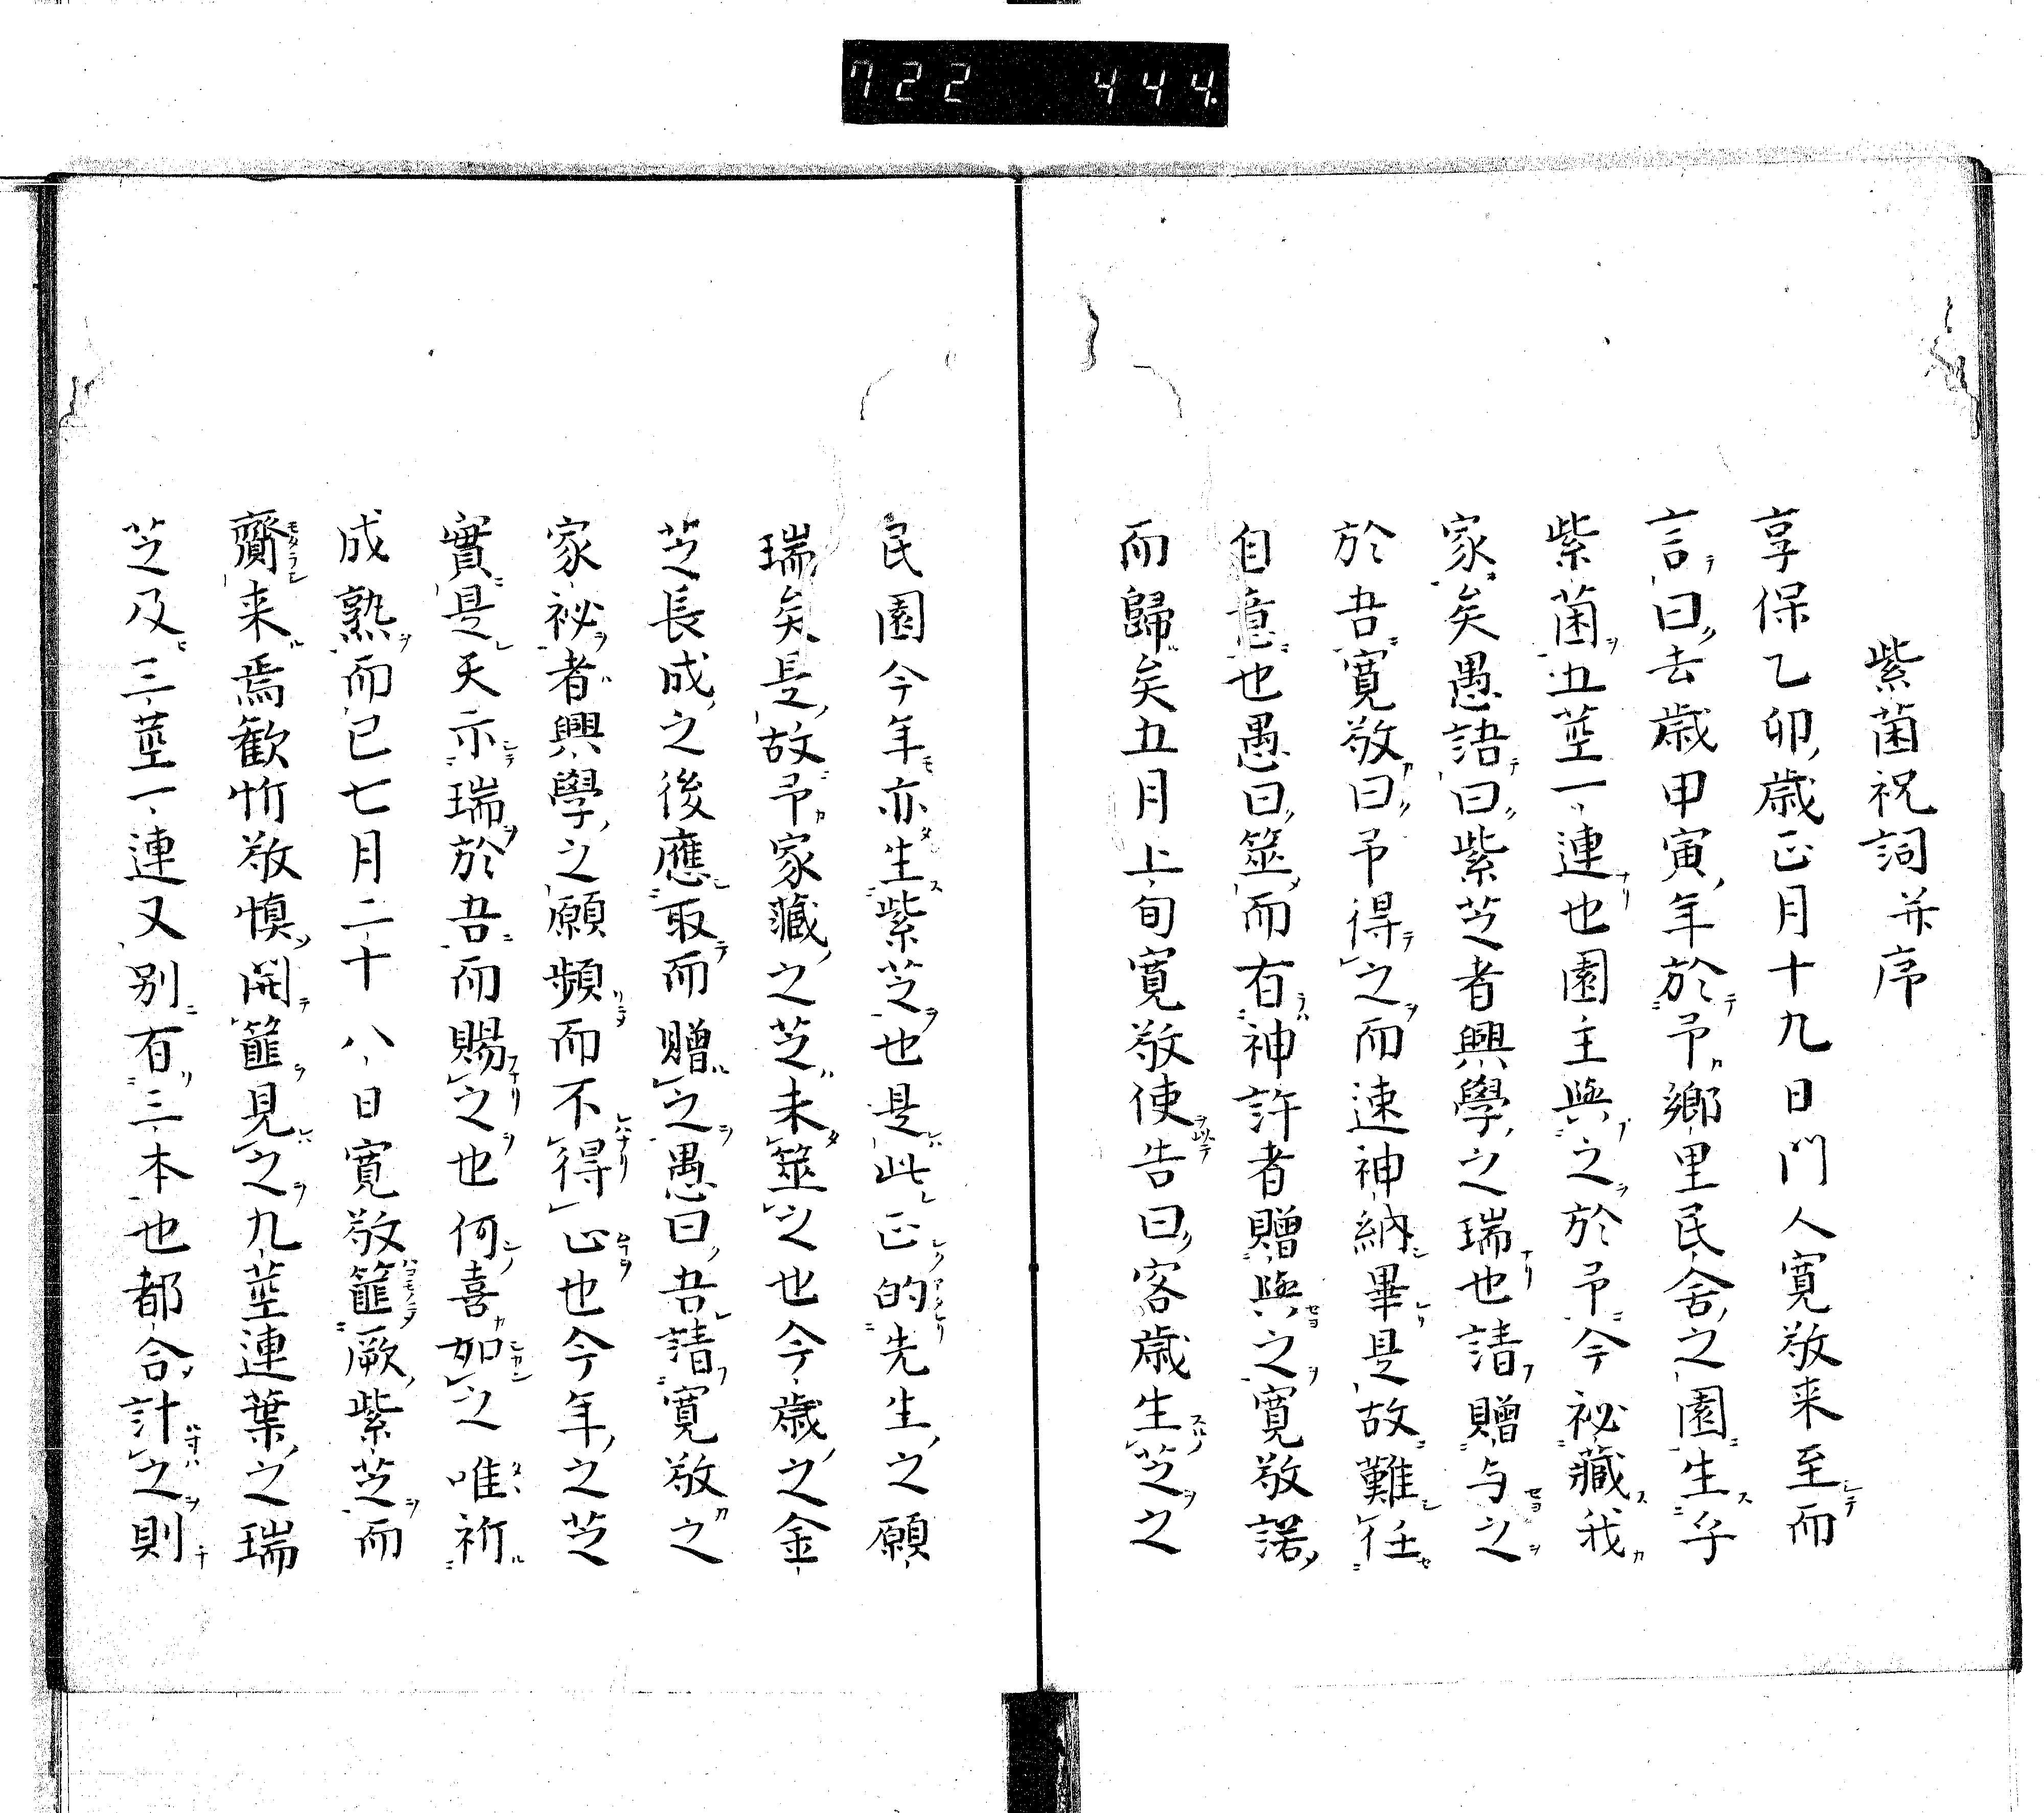 722 444
紫菌祝詞并序
享保乙卯歳正月十九日門人寛敬来至而
言曰去歳甲寅年於予郷里民舎之園生子
紫菌五莖一連也園主與之於予今祕藏我
家矣愚語曰紫芝者興學之瑞也請贈与之
於吾寛敬曰予得之而速神納畢是故難任
自意也愚曰筮而有神許者贈與之寛敬諾
而歸矣五月上旬寛敬使告曰客歳生芝之
民園今年亦生紫芝也是此正的先生之願
瑞矣是故予家藏之芝未筮之也今歳之金
芝長成之後應取而贈之愚曰吾請寛敬之
家祕者興學之願頻而不得止也今年之芝
實是天示瑞於吾而賜之也何喜如之唯祈
成熟而已七月二十八日寛敬篚厥紫芝而
齎来焉歓忻敬慎開篚見之九莖連葉之瑞
芝及三莖一連又別有三本也都合計之則